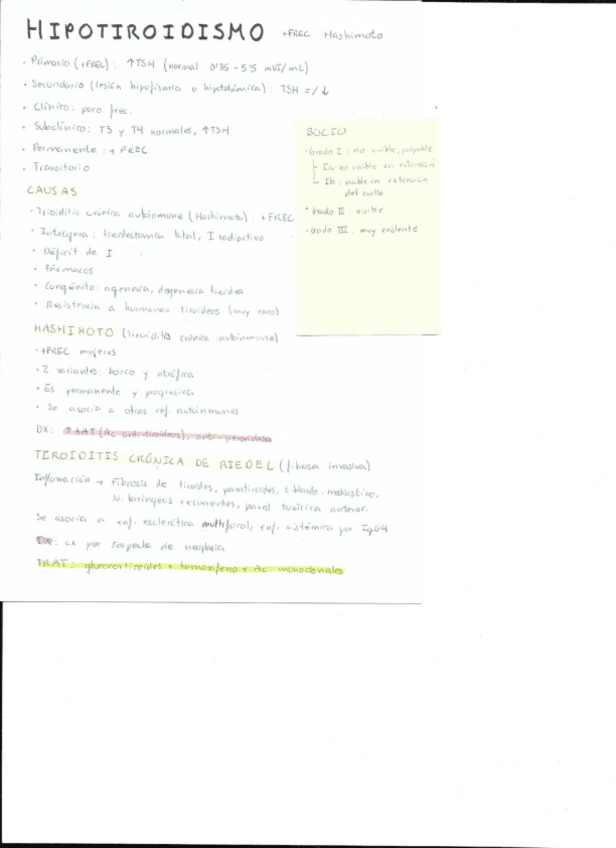 HIPOTIROIDISMO +FREC Hashimoto
· Primario (+FREC) : ↑TSH (normal 0'35 - 5'5 mUI/mL)
· Secundario (lesión hipofisaria o hipotalámica) : TSH =/↓
· Clínico : poco frec.
· Subclínico : T3 y T4 normales, ↑TSH
· Permanente : + FREC
· Transitorio
CAUSAS
· Tiroiditis crónica autoinmune (Hashimoto) : +FREC
· Iatrógena : tiroidectomía total, I radioactivo
· Déficit de I
· Fármacos
· Congénito : agenesia, disgenesia tiroidea
· Resistencia a hormonas tiroideas (muy raro)
HASHIMOTO (tiroiditis crónica autoinmune)
· +FREC mujeres
· 2 variantes : bocio y atrófica
· Es permanente y progresiva
· Se asocia a otras enf. autoinmunes
DX : ↑AAT (Ac antitiroideos), anti-peroxidasa
TIROIDITIS CRÓNICA DE RIEDEL (fibrosa invasiva)
Inflamación → Fibrosis de tiroides, paratiroides, t. blando, mediastino,
N. laríngeos recurrentes, pared torácica anterior.
Se asocia a enf. esclerótica multifocal, enf. sistémica por IgG4
DX : cx por sospecha de neoplasia
TRAT : glucocorticoides + tamoxifeno + Ac. monoclonales
BOCIO
· Grado I : no visible, palpable
Ia: no visible en extensión
Ib : visible en extensión
del cuello
· Grado II visible
· Grado III : muy evidente